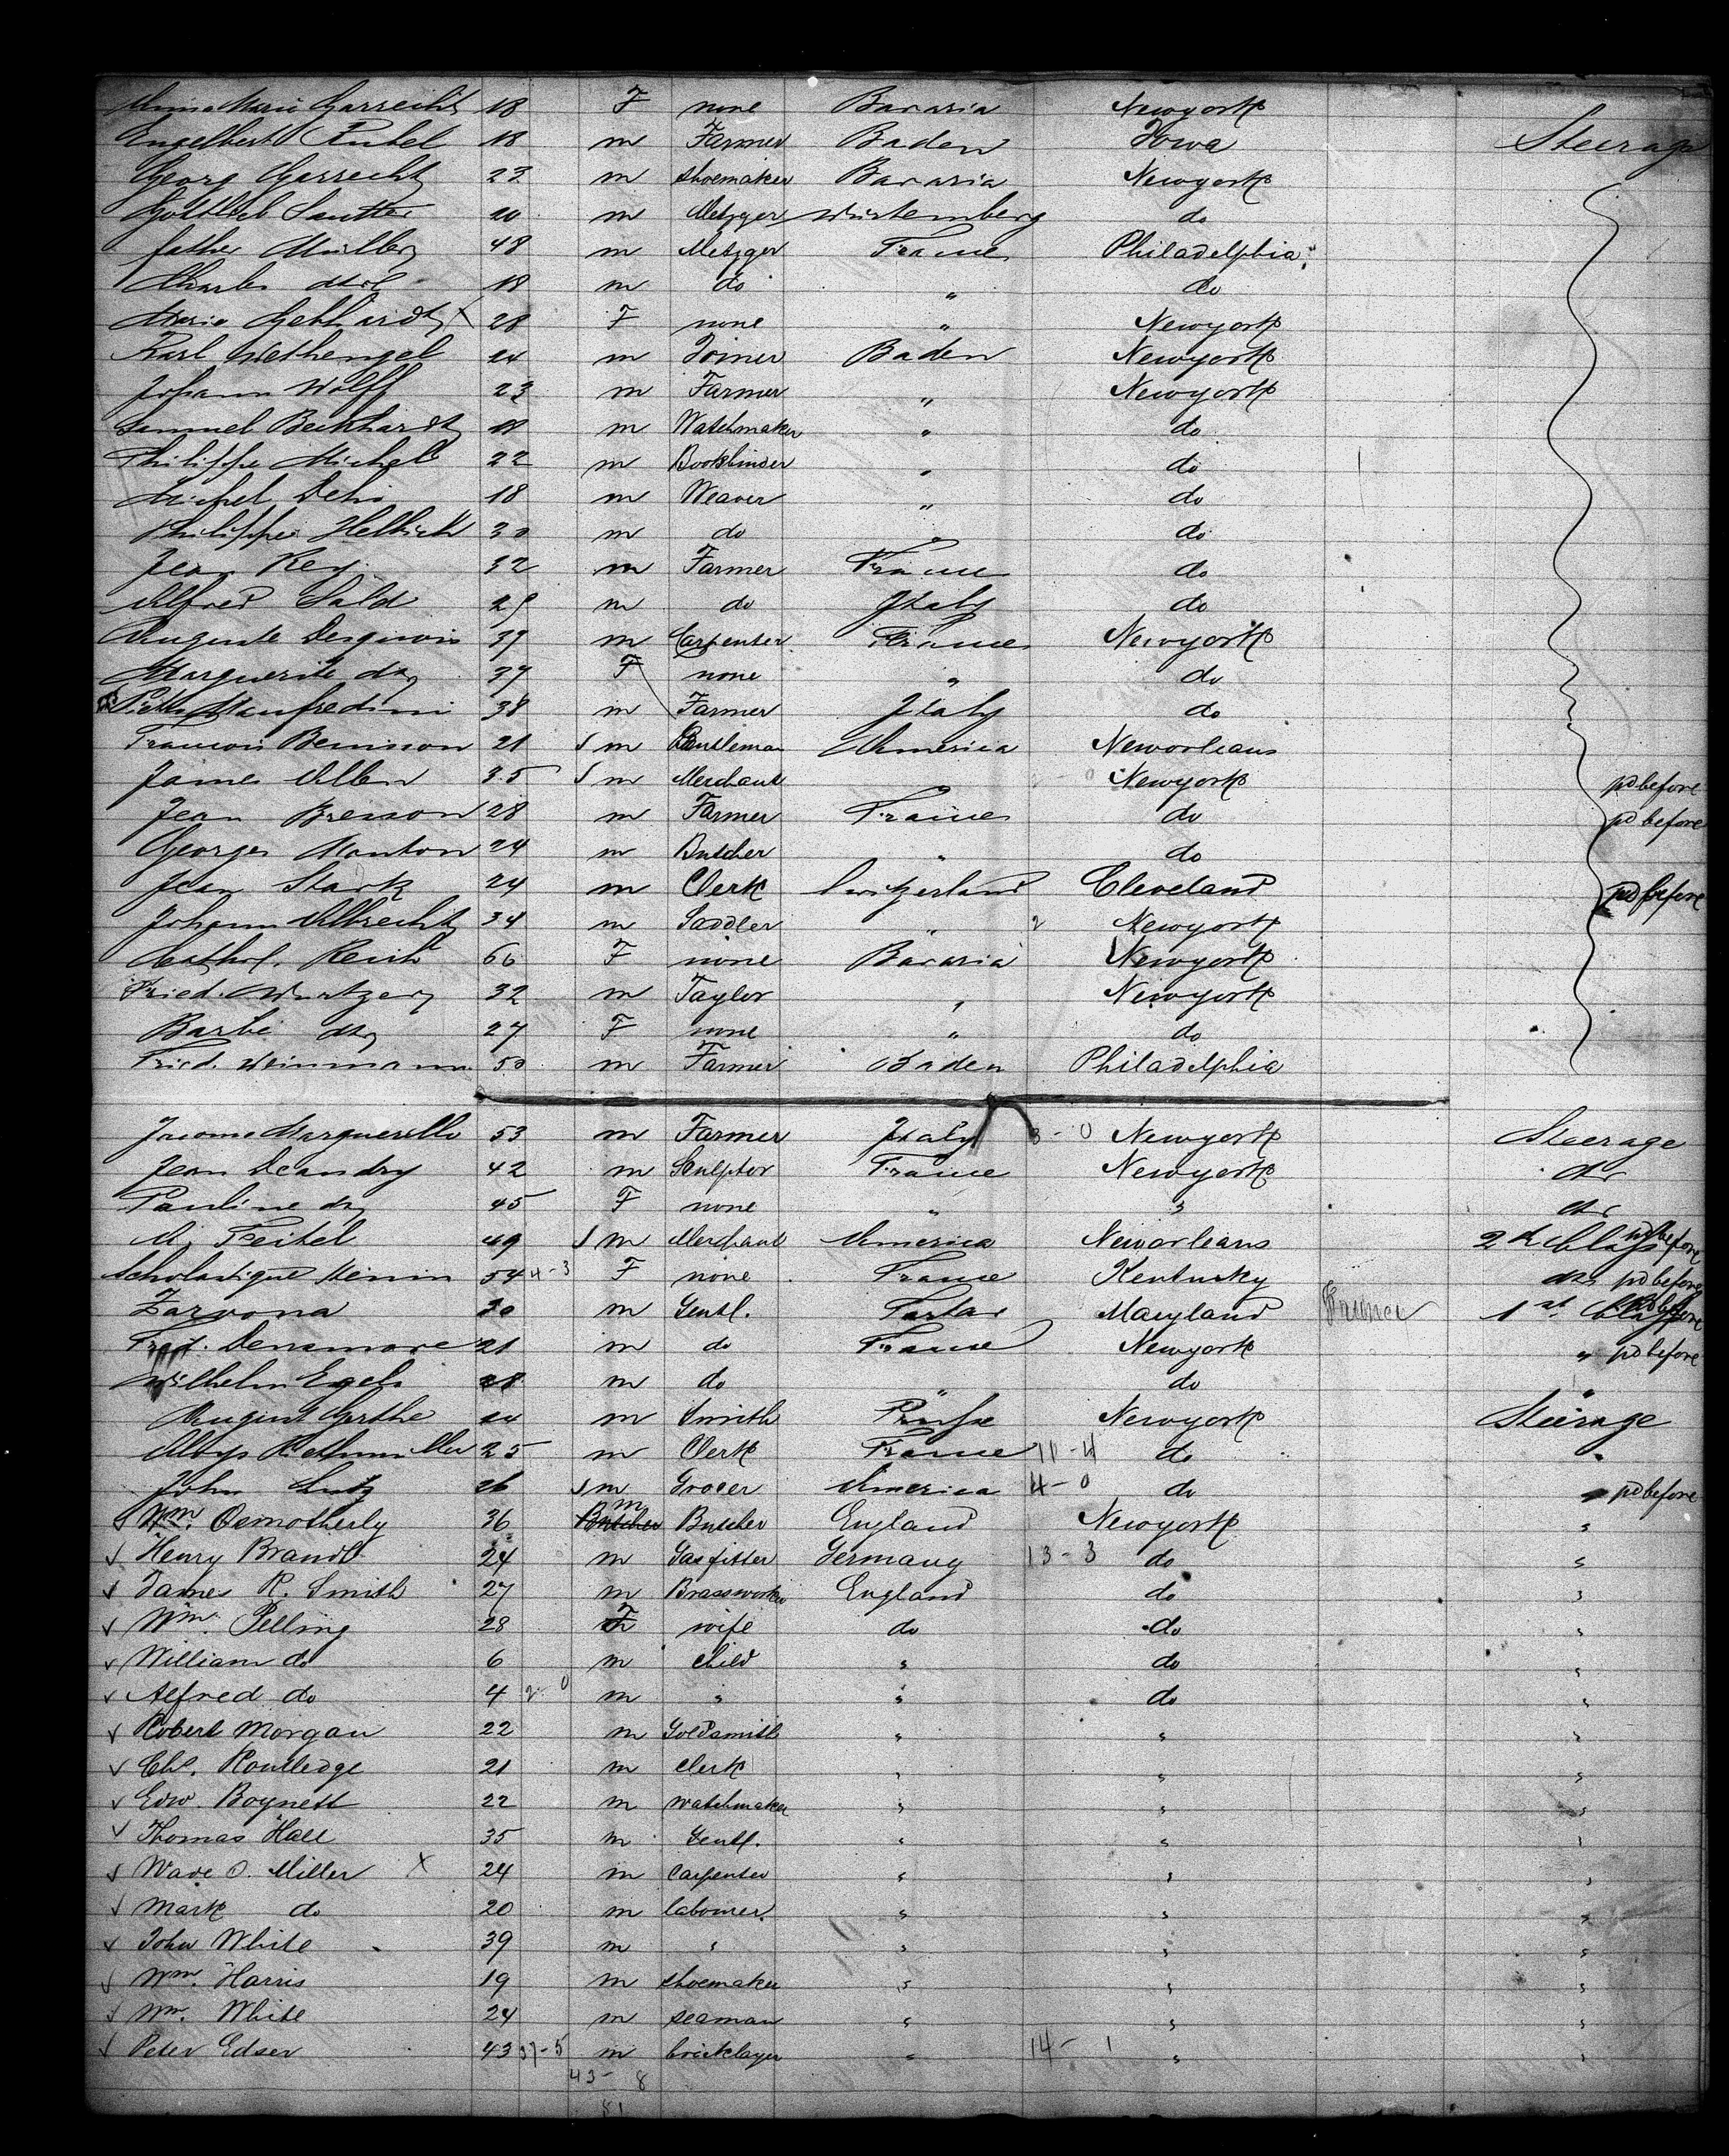 Anna Maria Garrecht 18 F none Bavaria Newyork
Engelbert 18 m Farmer Baden Iowa Steerage
Georg Garrecht 22 m shoemaker Bavaria Newyork
Gottlieb Sautter 20 m Metzger Würtemberg do
father Müller 48 m Metzger France Philadelphia
Charles do 18 m do " do
Maria Gebhardt X 28 F none " Newyork
Karl 24 m Joiner Baden Newyork
Johann Wolff 23 m Farmer " Newyork
Samuel Beckhardt 18 m Watchmaker " do
Philippe Michel 22 m Bookbinder " do
Michel Dehn 18 m Weaver " do
Philippe 30 m do " do
Jean Rey 32 m Farmer France do
Alfred Sald 29 m do Italy do
Auguste 39 m Carpenter France Newyork
Marguerite do 37 F none " do
Manfredini 38 m Farmer Italy do
Francois Benisson 21 m Gentleman America Neworleans
James Allen 35 m Merchant " Newyork pd before
Jean Breison 28 m Farmer France do pd before
Georges Manton 24 m Butcher " do
Jean Stark 24 m Clerk Switzerland Cleveland pd before
Johann Albrecht 34 m Saddler " 2 Newyork
Cathar. Reich 66 F none Bavaria Newyork
Fried. Wurtzer 32 m Taylor " Newyork
Barbe do 27 F none " do
Fried. Weinmann 50 m Farmer Baden Philadelphia
Margueritto 53 m Farmer Italy 3-0 Newyork Steerage
Jean Deandry 42 m Sculptor France Newyork do
Pauline do 45 F none " " do
M. Feitel 49 m Merchant America Neworleans 2d Class pd before
Scholastique Henin 54 4-3 F none France Kentusky do pd before
Zarvona 30 m Gentl. Tartar Maryland 1st Class pd before
Fred. Densmore 21 m do France Newyork " pd before
Wilhelm Engels 28 m do " do "
August Gerthe 24 m Smith Prusse Newyork Steerage
Aloys Rethmuller 25 m Clerk France 11-4 do "
John Lutz 26 m Grocer America 4-0 do " pd before
Wm. Osmotherly 36 m Butcher Butcher England Newyork "
Henry Brandt 24 m Gasfitter Germany 13-3 do "
James R. Smith 27 m Brassworker England do "
Wm. Pelling 28 F wife do do "
William do 6 m child " do "
Alfred do 4 2 0 m " " do "
Robert Morgan 22 m Goldsmith " " "
Chs. Routledge 21 m clerk " " "
Edw. Boynett 22 m watchmaker " " "
Thomas Hall 35 m Gentl. " " "
Wade O. Miller X 24 m Carpenter " " "
Mark do 20 m labourer " " "
John White 39 m " " " "
Wm. Harris 19 m shoemaker " " "
Wm. White 24 m seaman " " "
Peter Edser 43 37-5 m bricklayer " 14-1 " "
43-8
81